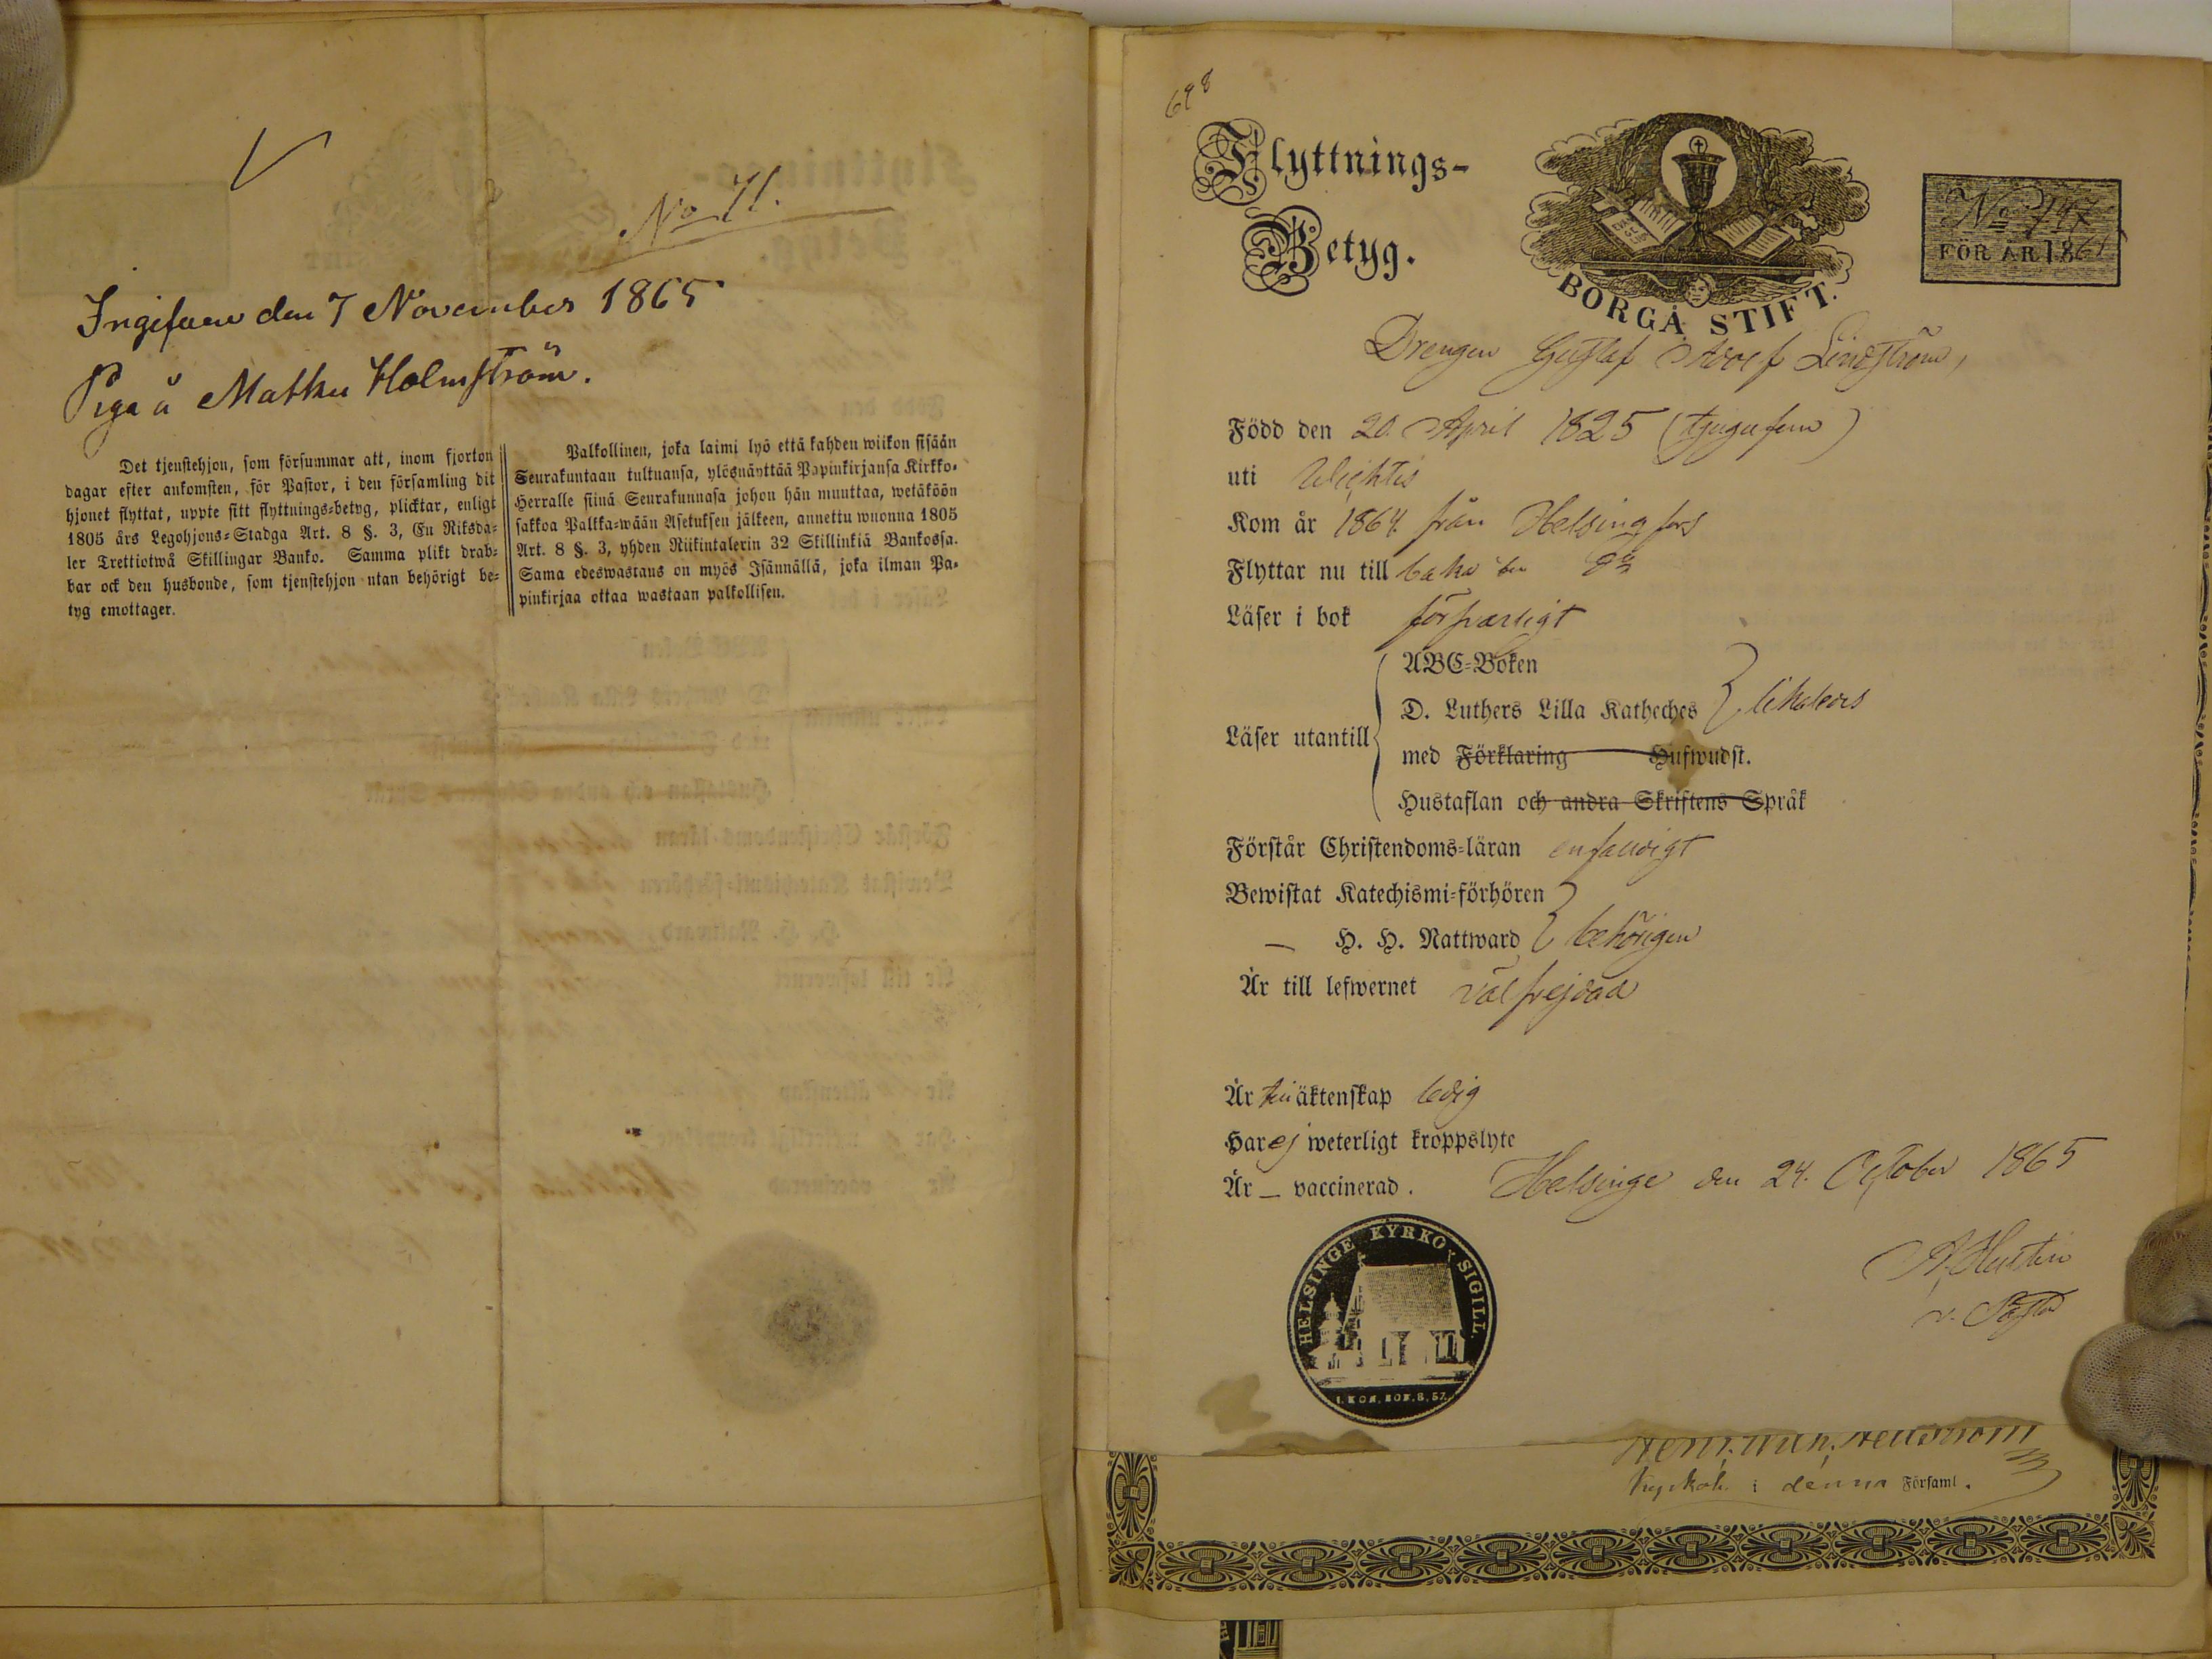 No 71.
Ingifven den 7 November 1865
Piga å Malku Holmström.
Det tjenstehjon, som försummar att, inom fjorton
dagar efter ankomsten, för Pastor, i den församling dit
hjonet flyttat, uppte sitt flyttnings-betyg, plicktar, enligt
1805 års Legohjons-Stadga Art. 8 §. 3, En Riksda-
ler Trettiotwå Skillingar Banko. Samma plikt drab-
bar ock den husbonde, som tjenstehjon utan behörigt be-
tyg emottager.
Palkollinen, joka laimi lyö että kahden wiikon sisään
Seurakuntaan tultuansa, ylösnäyttää Papinkirjansa Kirkko-
Herralle siinä Seurakunnasa johon hän muuttaa, wetäköön
sakkoa Palkka-wään Asetuksen jälkeen, annettu wuonna 1805
Art. 8 §. 3, yhden Riikintalerin 32 Skillinkiä Bankossa.
Sama edeswastaus on myös Isännällä, joka ilman Pa-
pinkirjaa ottaa wastaan palkollisen.
698
Flyttnings-
Betyg.
BORGÅ STIFT.
No 797
FÖR ÅR 1865
Drengen Gustaf Adolf Lindström,
Född den 20. April 1825 (tjugufem)
uti Wichtis
Kom år 1864 från Helsingfors
Flyttar nu till baka
Läser i bok försvarligt
Läser utantill
ABC-Boken
D. Luthers Lilla Katheches likaledes
med Förklaring Hufwudst.
Hustaflan och andra Skriftens Språk
Förstår Christendoms-läran enfaldigt
Bewistat Katechismi-förhören
— H. H. Nattward behörigen
Är till lefwernet väl frejdad
Är till äktenskap ledig
Har ej weterligt kroppslyte
Är — vaccinerad.
Helsinge den 24. October 1865
A. Hultin
v. Pastor
HELSINGE KYRKO SIGILL.
1. KON. BOK. 8, 57.
Kyrkoh. i denna Församl.